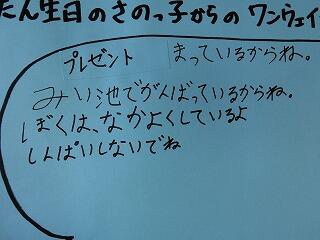 たん生日のさのっ子からのワンウェイ
プレゼント まっているからね。
みい池でがんばっているからね。
ぼくは、なかよくしているよ
しんぱいしないでね